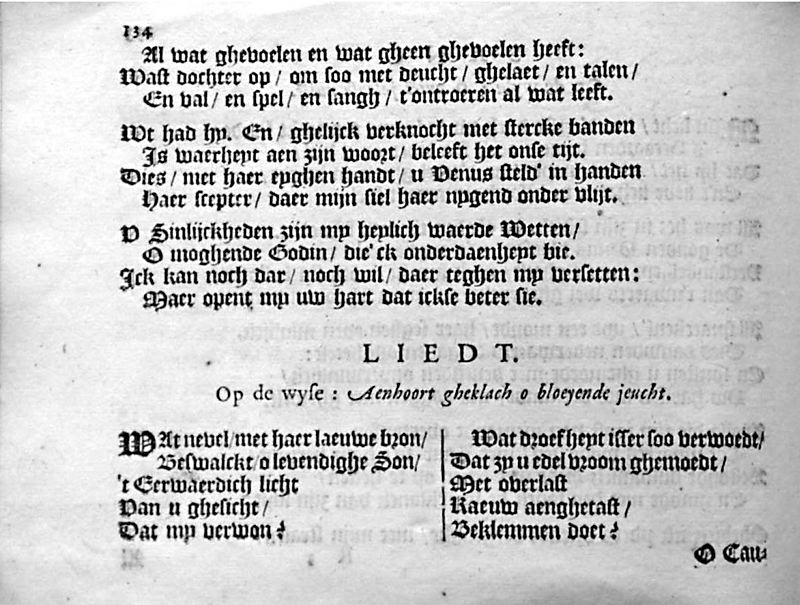 134
Al wat ghevoelen en wat gheen ghevoelen heeft:
Wast dochter op/ om soo met deucht/ ghelaet/ en talen/
En val/ en spel/ en sangh/ t'ontroeren al wat leeft.
Wt had hy. En/ ghelijck verknocht met stercke banden
Is waerheyt aen zijn woort/ beleeft het onse tijt.
Dies/ met haer eyghen handt/ u Venus steld' in handen
Haer scepter/ daer mijn siel haer nygend onder vlijt.
V Sinlijckheden zijn my heylich waerde Wetten/
O moghende Godin/ die'ck onderdaenheyt bie.
Ick kan noch dar/ noch wil/ daer teghen my versetten:
Maer opent my uw hart dat ickse beter sie.
LIEDT.
Op de wyse: Aenhoort gheklach o bloeyende jeucht.
WAt nevel/met haer laeuwe bron/
Beswalckt/o levendighe Son/
't Eerwaerdich licht
Van u ghesicht/
Dat my verwon?
Wat droefheyt isser soo verwoedt/
Dat zy u edel vroom ghemoedt/
Met overlast
Raeuw aenghetast/
Beklemmen doet?
O Cau-